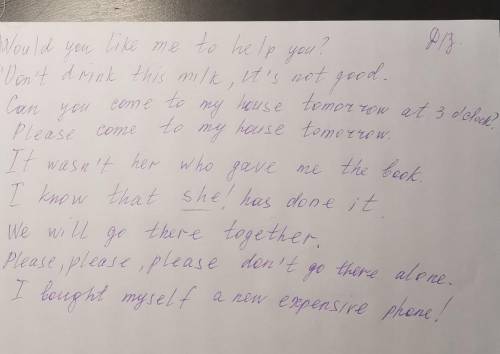 Would you like me to help you? Д/з.
Don't drink this milk, it's not good.
Can you come to my house tomorrow at 3 o'clock?
Please come to my house tomorrow.
It wasn't her who gave me the book.
I know that she! has done it.
We will go there together.
Please, please, please don't go there alone.
I bought myself a new expensive phone!